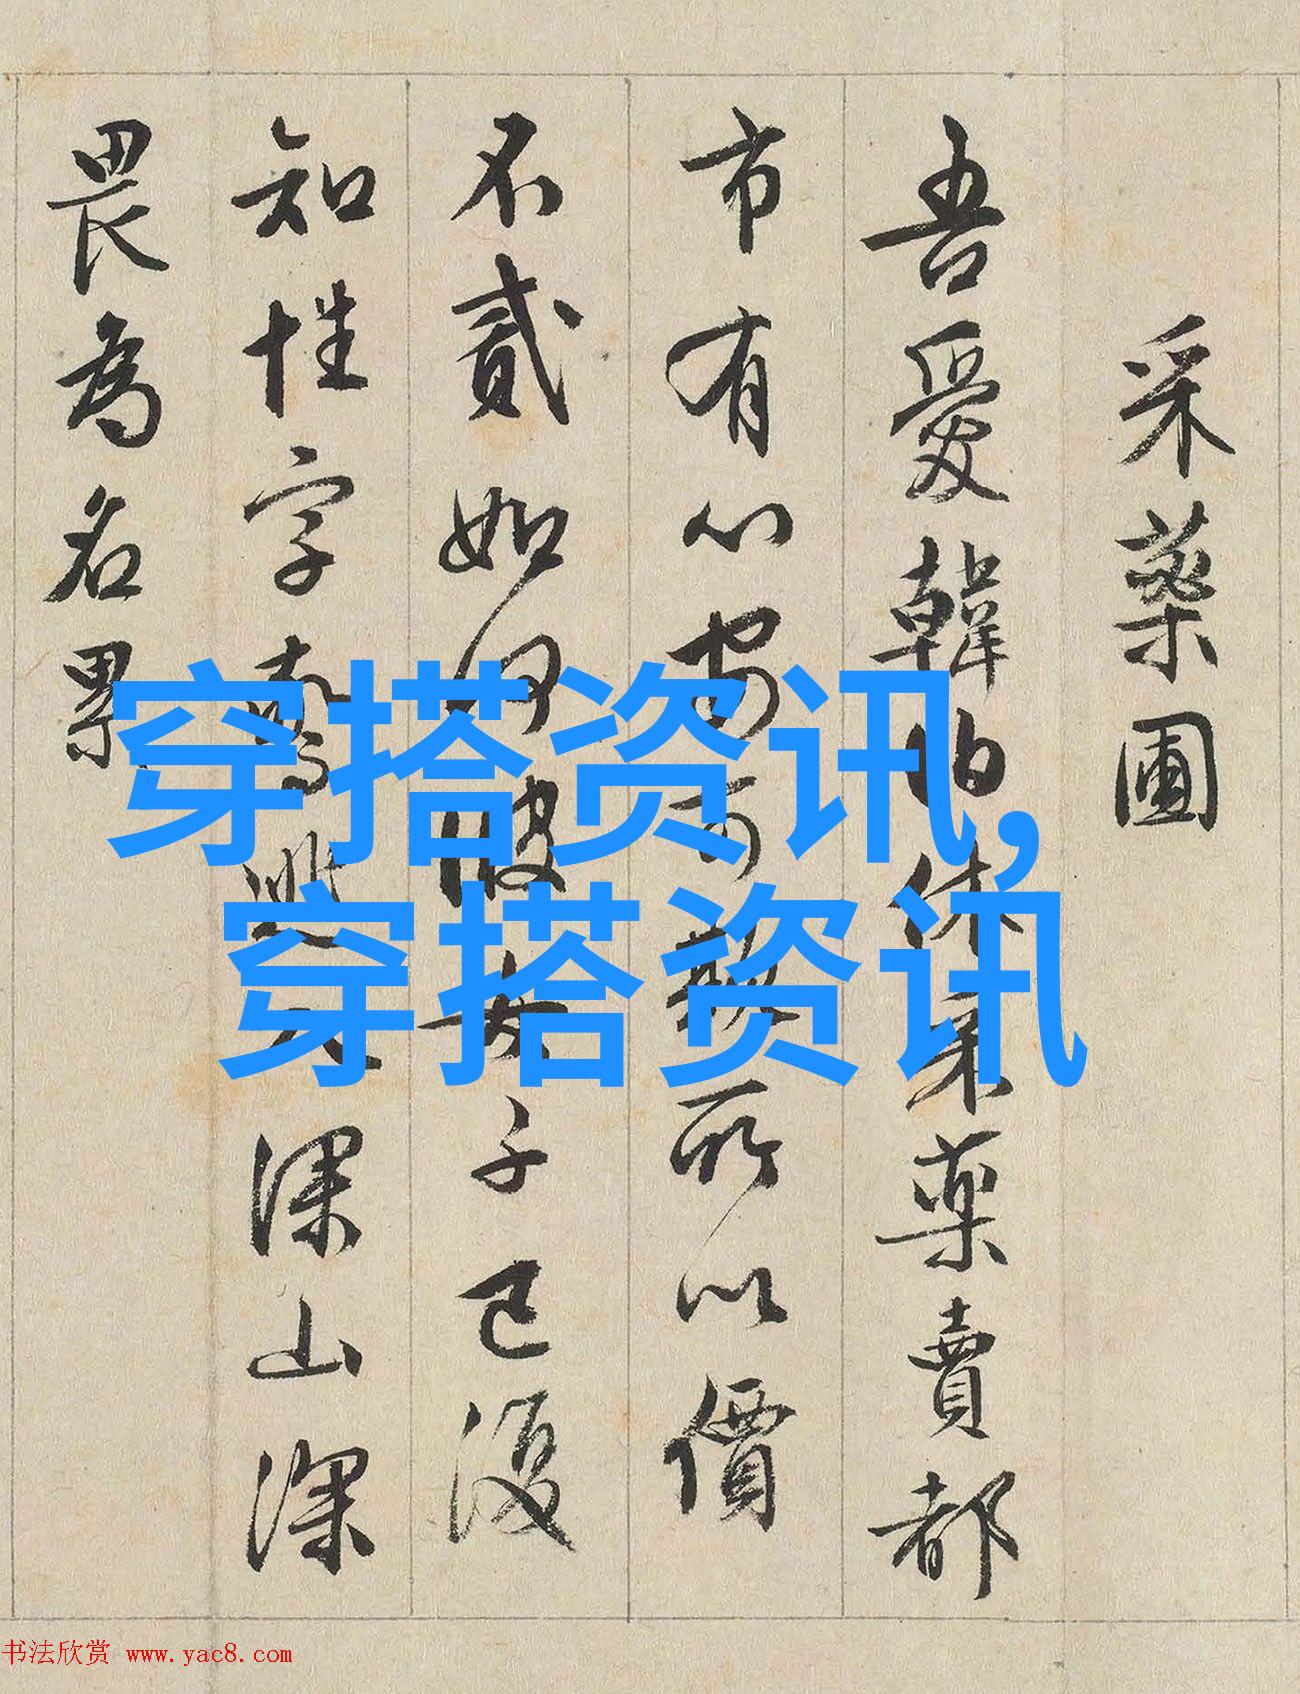 采藥圃
吾愛韓伯休采藥賣都
市有心安可欺所以價
不貳如何彼女子已復
知姓字驚逃入深山深
畏為名累
穿搭资讯,
穿搭资讯
书法欣赏 www.yac8.com